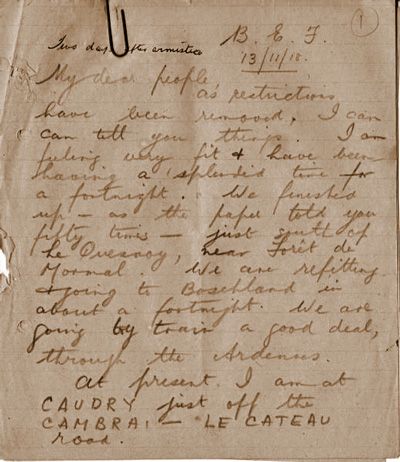 ①
B. E. F.
Two days after armistice
13/11/18.
My dear people
as restrictions
have been removed, I can
can tell you things. I am
feeling very fit & have been
having a splendid time for
a fortnight. We finished
up – as the paper told you
fifty times – just south of
Le Quesnoy, near Forêt de
Mormal. We are refitting
& going to Boschland in
about a fortnight. We are
going by train a good deal,
through the Ardennes.
At present I am at
CAUDRY just off the
CAMBRAI – LE CATEAU
road.